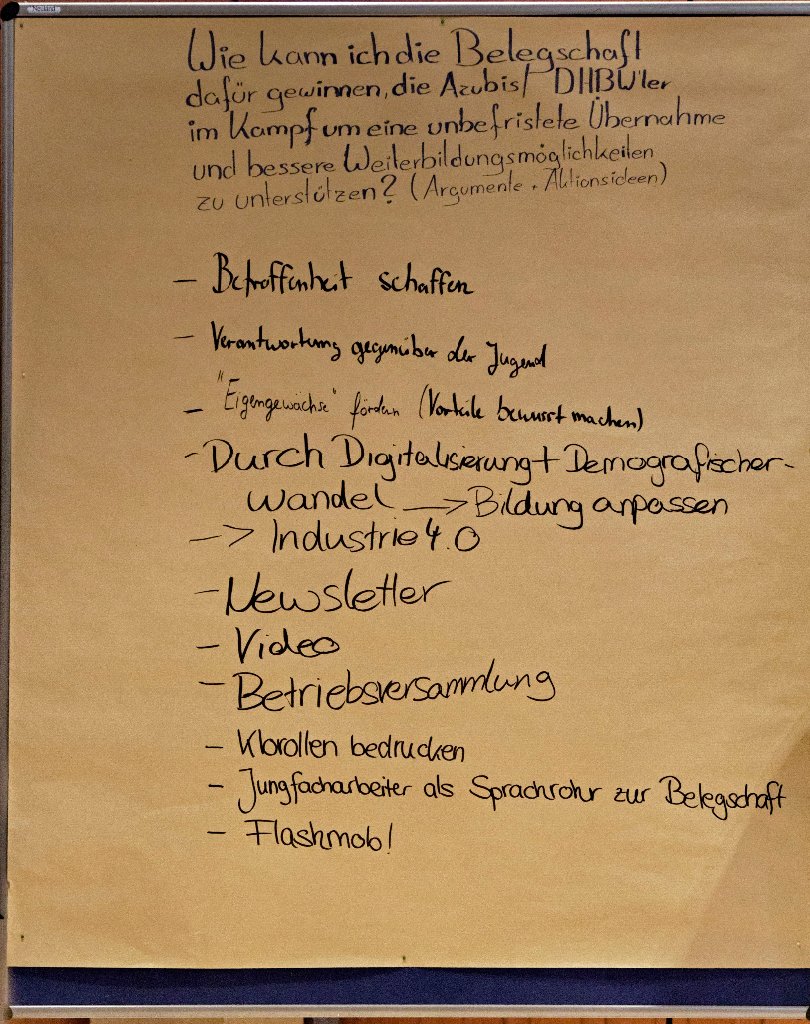 Wie kann ich die Belegschaft
dafür gewinnen, die Azubis/ DHBW'ler
im Kampf um eine unbefristete Übernahme
und bessere Weiterbildungsmöglichkeiten
zu unterstützen? (Argumente + Aktionsideen)
- Betroffenheit schaffen
- Verantwortung gegenüber der Jugend
- "Eigengewächse" fördern (Vorteile bewusst machen)
- Durch Digitalisierung + Demografischer-
wandel -> Bildung anpassen
-> Industrie 4.0
- Newsletter
- Video
- Betriebsversammlung
- Klorollen bedrucken
- Jungfacharbeiter als Sprachrohr zur Belegschaft
- Flashmob!